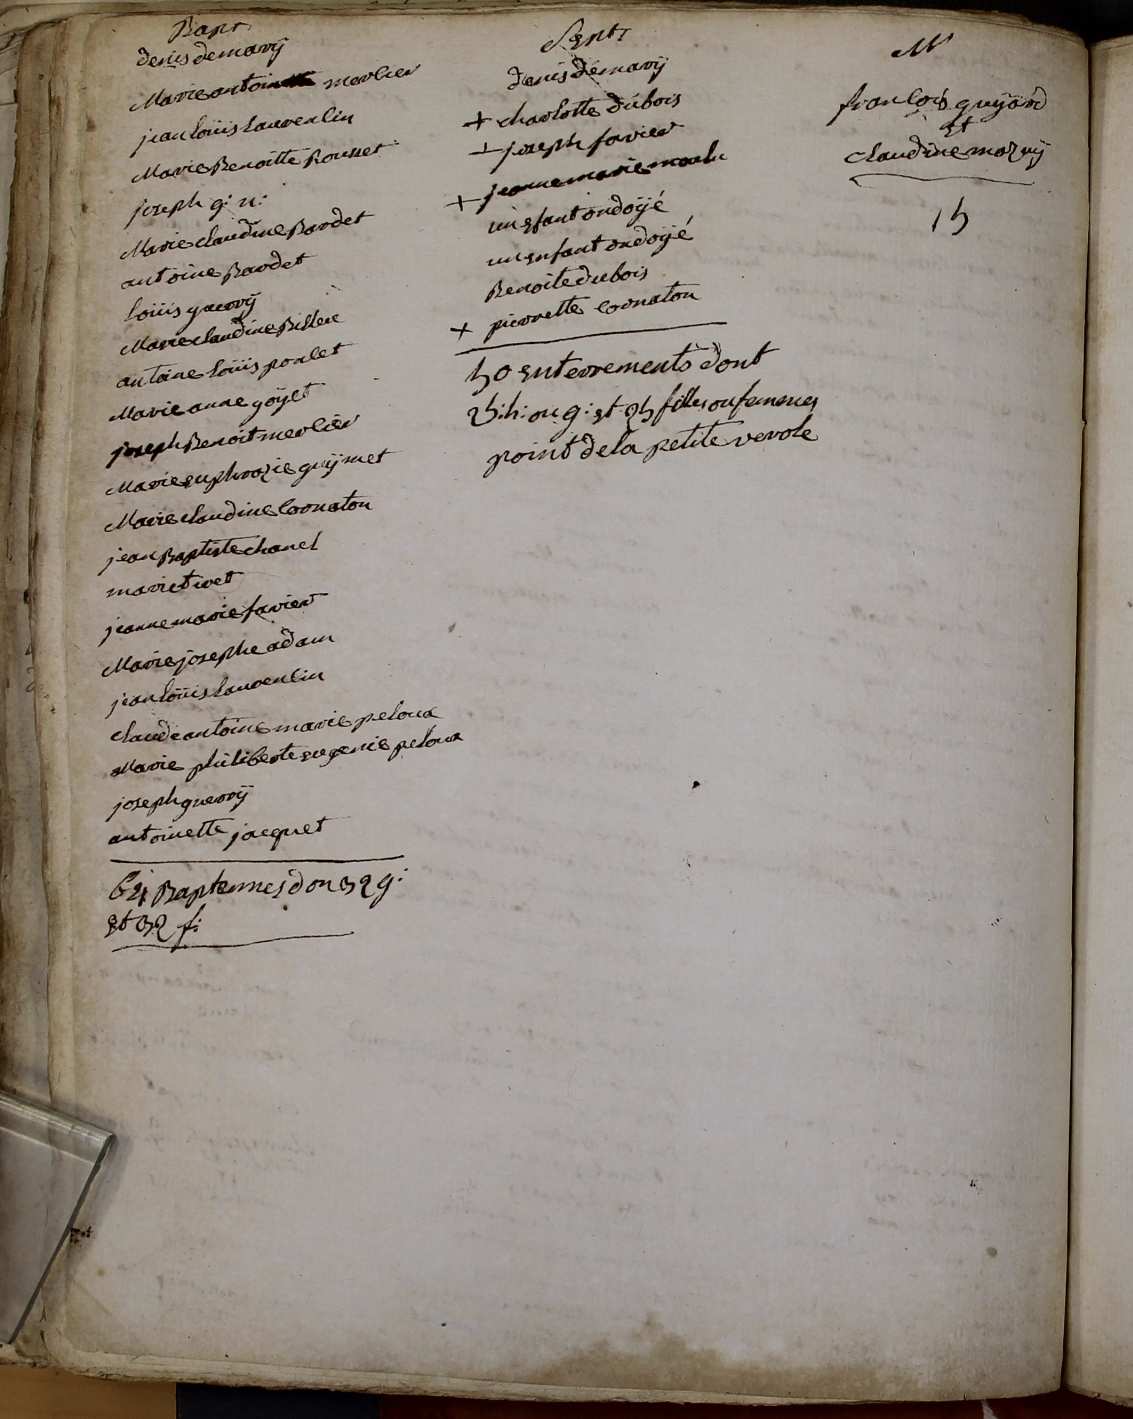 Bapt
denis demarÿ
Marie antoinette merlier
jean Loüis Laurencin
Marie Benoitte Rousset
joseph g: n:
Marie claudine Bardet
antoine Bardet
Loüis guerrÿ
Marie claudine
antoine Loüis poulet
Marie anne goÿet
joseph Benoit merlier
Marie euphrosie guÿmet
Marie claudine Cornaton
jean Baptiste chanel
marie tivet
jeanne marie favier
Marie josephe adam
jean Loüis Laurencin
claude antoine marie peloux
Marie philiberte eugenie peloux
joseph guerrÿ
antoinette jacquet
64 Baptemmes don 32 g:
et 32 f:
Sept
denis demarÿ
+ charlotte dubois
+ joseph favier
+ jeanne marie
un efant ondoÿé
un enfant ondoÿé
Benoite dubois
+ pierrette Cornaton
50 enterrements dont
25: h: ou g: et 25 filles ou femmes
point de la petite verole
M
francois guÿard
et
claudine mazuÿ
15